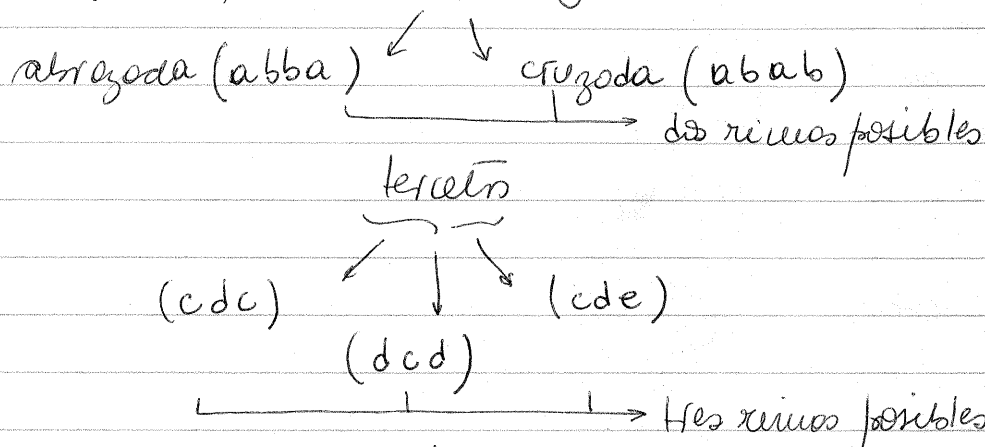 abrazada (abba) cruzada (abab)
dos rimas posibles
tercetos
(cdc) (cde)
(dcd)
tres rimas posibles